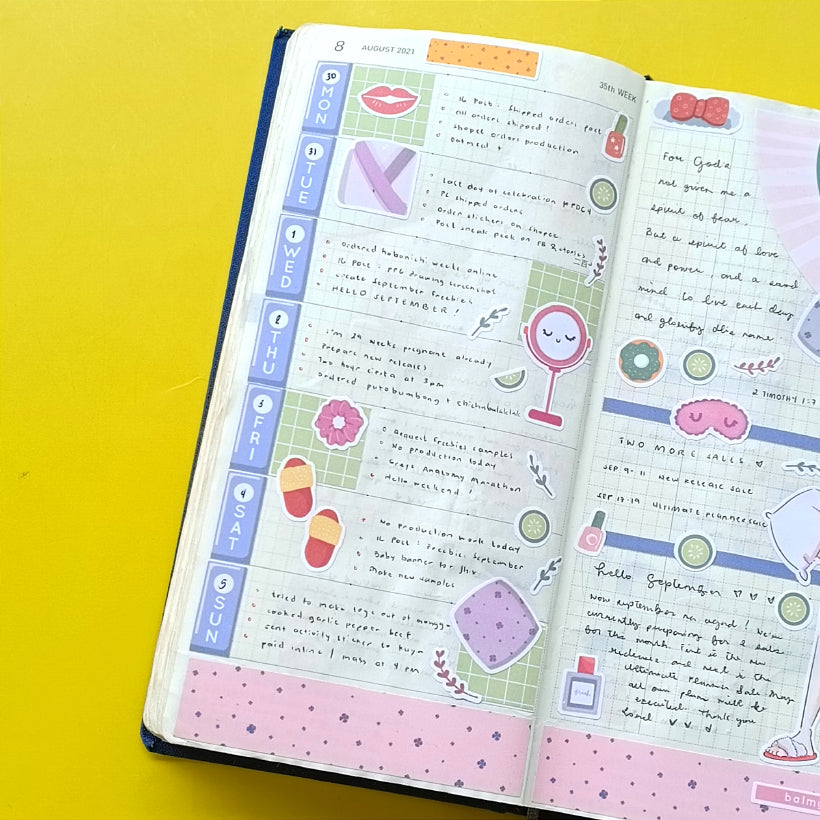 8 AUGUST 2021
35th WEEK
30 MON
IG Post: Shipped orders post
All orders shipped!
Shopee orders production
Oatmeal +
31 TUE
Last day of celebration
PL shipped orders
Order stickers on Shopee
Post sneak peek on FB & stories
1 WED
Ordered hobonichi weeks online
IG Post: drawing screenshot
create September freebies
HELLO SEPTEMBER!
2 THU
I'm 29 weeks pregnant already
Prepare new releases
Two hour siesta at 3pm
Ordered putobumbong +
3 FRI
Request freebies samples
No production today
Greys Anatomy Marathon
Hello weekend!
4 SAT
No production work today
IG Post: Freebies September
Baby banner for
Make new samples
5 SUN
tried to make toge out of monggo
cooked garlic pepper beef
sent activity sticker to kuya
paid intine / mass at 4 pm
For God's
not given me a
spirit of fear.
But a spirit of love
and power, and a sound
mind to live each day
and glorify His name
2 TIMOTHY 1:7
TWO MORE SALES
SEP 9-11 NEW RELEASE SALE
SEP 17-19 ULTIMATE PLANNER SALE
hello September
Wow september na agad! We're
currently preparing for 2 sales
for the month. First is the new
release and next is the
ultimate planner sale. May
all our plans will be
executed. Thank you
Lord
balmy